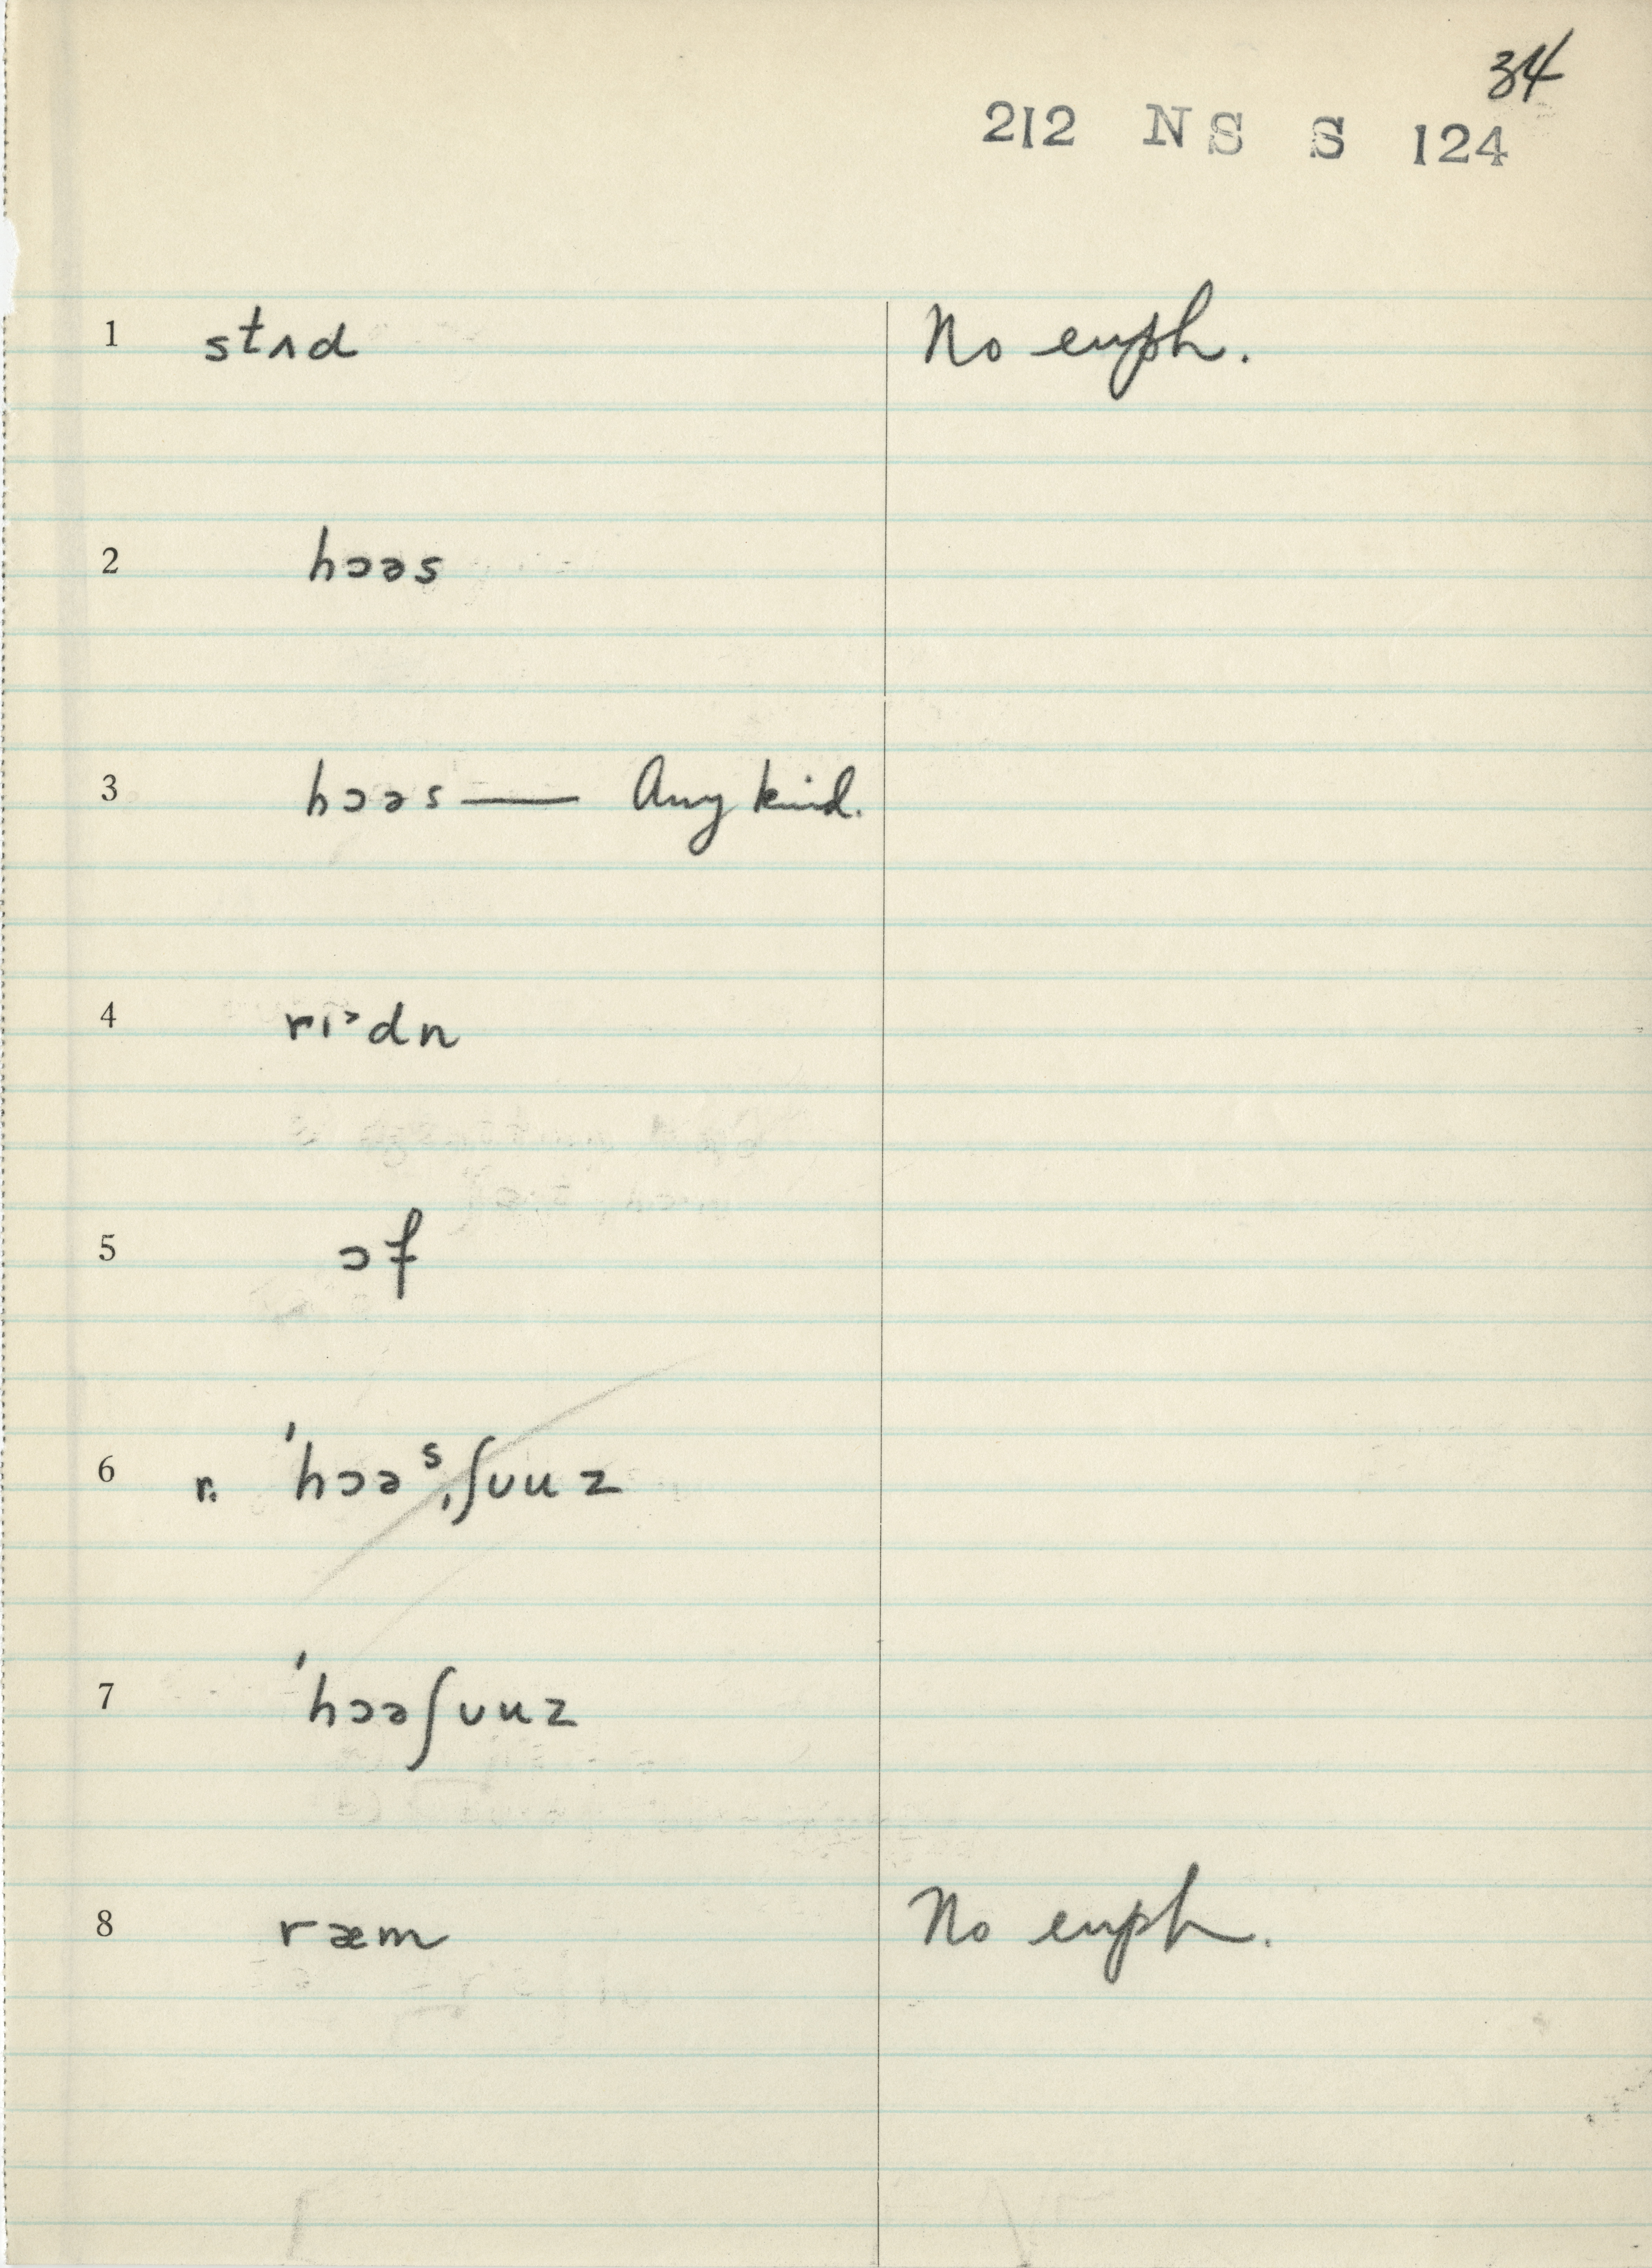 34
212 NS S 124
1 stʌd No euph.
2 hɔəs
3 hɔəs — Any kind.
4 rɪ˃dn
5 ɔf
6 r. ˈhɔəˢˌʃuuz
7 ˈhɔəʃuuz
8 ræm No euph.